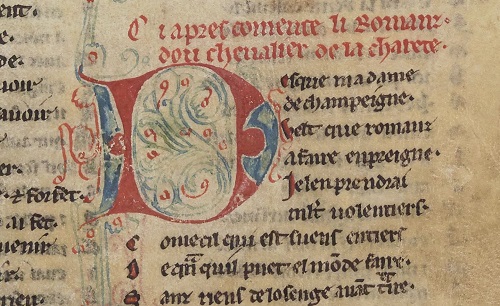 Ci apres comence li Romanz.
dou cheualier de la charete.
Desque madame
de champeigne.
Velt que romanz
a faire enpreigne.
Jelenprendrai
mlt uolentiers.
Come cil qui est suens entiers
De qan quil puet el mōde faire.
Sanz riens de losenge auāt
⁊ forfet.